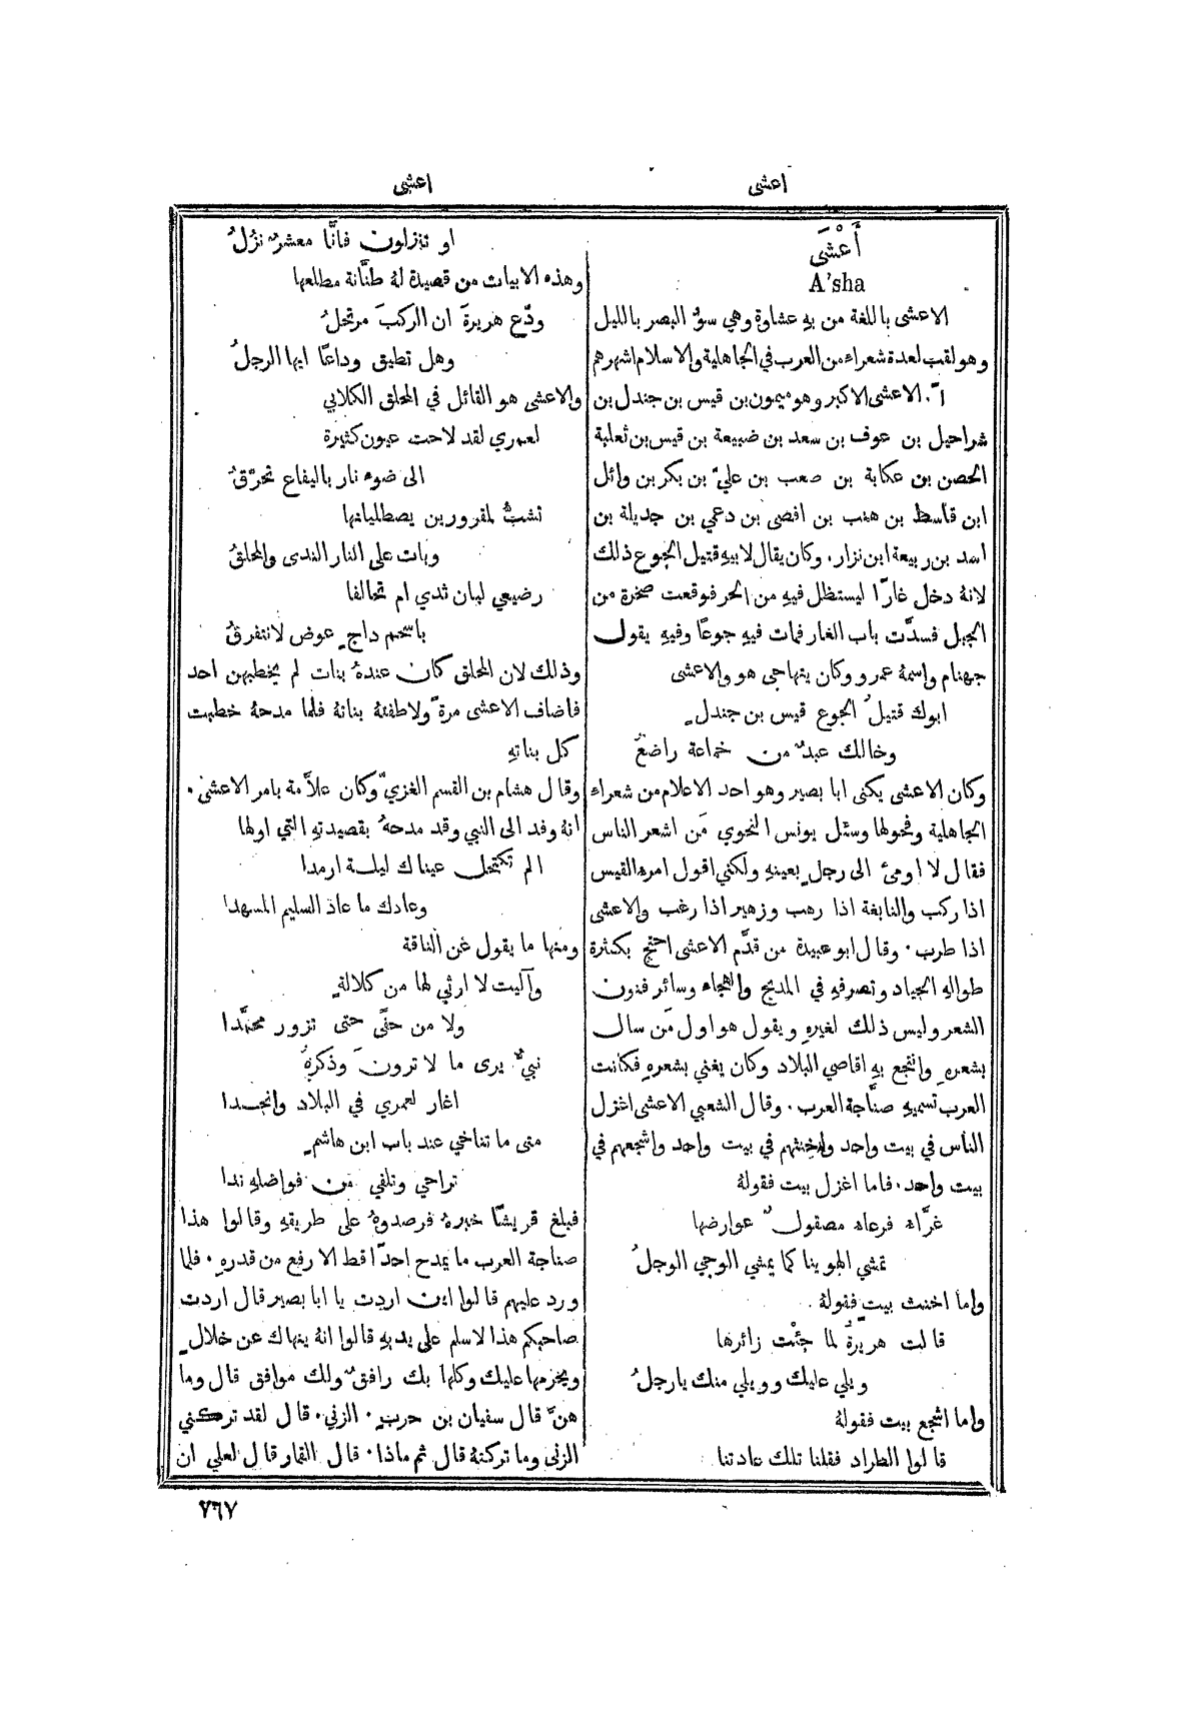 اعشى
اعشى
أَعْشَى
A'sha
الاعشى باللغة من بهِ عشاوة وهي سوُّ البصر بالليل
وهو لقب لعدة شعراء من العرب في الجاهلية والاسلام اشهرهم
١ً. الاعشى الاكبر وهو ميمون بن قيس بن جندل بن
شراحيل بن عوف بن سعد بن ضبيعة بن قيس بن ثعلبة
الحصن بن عكابة بن صعب بن عليّ بن بكر بن وائل
ابن قاسط بن هنب بن افصى بن دعي بن جديلة بن
اسد بن ربيعة ابن نزار. وكان يقال لابيهِ قتيل الجوع ذلك
لانهُ دخل غارًا ليستظل فيهِ من الحر فوقعت صخرة من
الجبل فسدَّت باب الغار فمات فيهِ جوعًا وفيهِ يقول
جهنام واسمهُ عمرو وكان يتهاجى هو والاعشى
ابوك قتيلُ الجوع قيس بن جندلٍ
وخالك عبدٌ من خماعة راضعُ
وكان الاعشى يكنى ابا بصير وهو احد الاعلام من شعراء
الجاهلية وفحولها وسئل يونس النحوي مَن اشعر الناس
فقال لا اومئ الى رجلٍ بعينهِ ولكني اقول امرء القيس
اذا ركب والنابغة اذا رهب وزهير اذا رغب والاعشى
اذا طرب. وقال ابو عبيدة من قدَّم الاعشى احتج بكثرة
طوالهِ الجياد وتصرفهِ في المديح والهجاء وسائر فنون
الشعر وليس ذلك لغيرهِ ويقول هو اول مَن سال
بشعرهِ وانتجع بهِ اقاصي البلاد وكان يغني بشعرهِ فكانت
العرب تسميهِ صنَّاجة العرب. وقال الشعبي الاعشى اغزل
الناس في بيت واحد واخنثهم في بيت واحد واشجعهم في
بيت واحد. فاما اغزل بيت فقولهُ
غرَّاء فرعاء مصقولٌ عوارضها
تمشي الهوينا كما يمشي الوجي الوجلُ
واما اخنث بيت فقولهُ
قالت هريرةُ لما جئت زائرها
ويلي عليك وويلي منك يا رجلُ
واما اشجع بيت فقولهُ
قالوا الطراد فقلنا تلك عادتنا
او تنزلون فانَّا معشرٌ نزُلُ
وهذه الابيات من قصيدة لهُ طنَّانة مطلعها
ودّع هريرةَ ان الركبَ مرتحلُ
وهل تطيق وداعًا ايها الرجلُ
والاعشى هو القائل في المحلق الكلابي
لعمري لقد لاحت عيون كثيرة
الى ضوء نار باليفاع تحرَّقُ
تشبُّ لمقرورين يصطليانها
وبات على النار الندى والمحلقُ
رضيعي لبان ثدي ام تحالفا
باسحم داجٍ عوض لا نتفرقُ
وذلك لان المحلق كان عندهُ بنات لم يخطبهن احد
فاضاف الاعشى مرةً ولاطفتهُ بناتهُ فلما مدحهُ خطبت
كل بناتهِ
وقال هشام بن القسم الغزيّ وكان علاَّمة بامر الاعشى
انهُ وفد الى النبي وقد مدحهُ بقصيدتهِ التي اولها
الم تكتحل عيناك ليلة ارمدا
وعادك ما عاد السليم المسهدا
ومنها ما يقول عن الناقة
وآليت لا ارثي لها من كلالةٍ
ولا من حفًى حتى تزور محمَّدا
نبيٌّ يرى ما لا ترونَ وذكرهُ
اغار لعمري في البلاد وانجدا
متى ما تناخي عند باب ابن هاشمٍ
تراحي وتلقي من فواضلهِ ندا
فبلغ قريشًا خبرهُ فرصدوهُ على طريقهِ وقالوا هذا
صناجة العرب ما يمدح احدًا قط الا رفع من قدرهِ. فلما
ورد عليهم قالوا اين اردت يا ابا بصير قال اردت
صاحبكم هذا لاسلم على يديهِ قالوا انهُ ينهاك عن خلالٍ
ويحرمها عليك وكلها بك رافقٌ ولك موافق قال وما
هنَّ قال سفيان بن حرب. الزنى. قال لقد تركني
الزنى وما تركتهُ قال ثم ماذا. قال القمار قال لعلي ان
٧٦٧